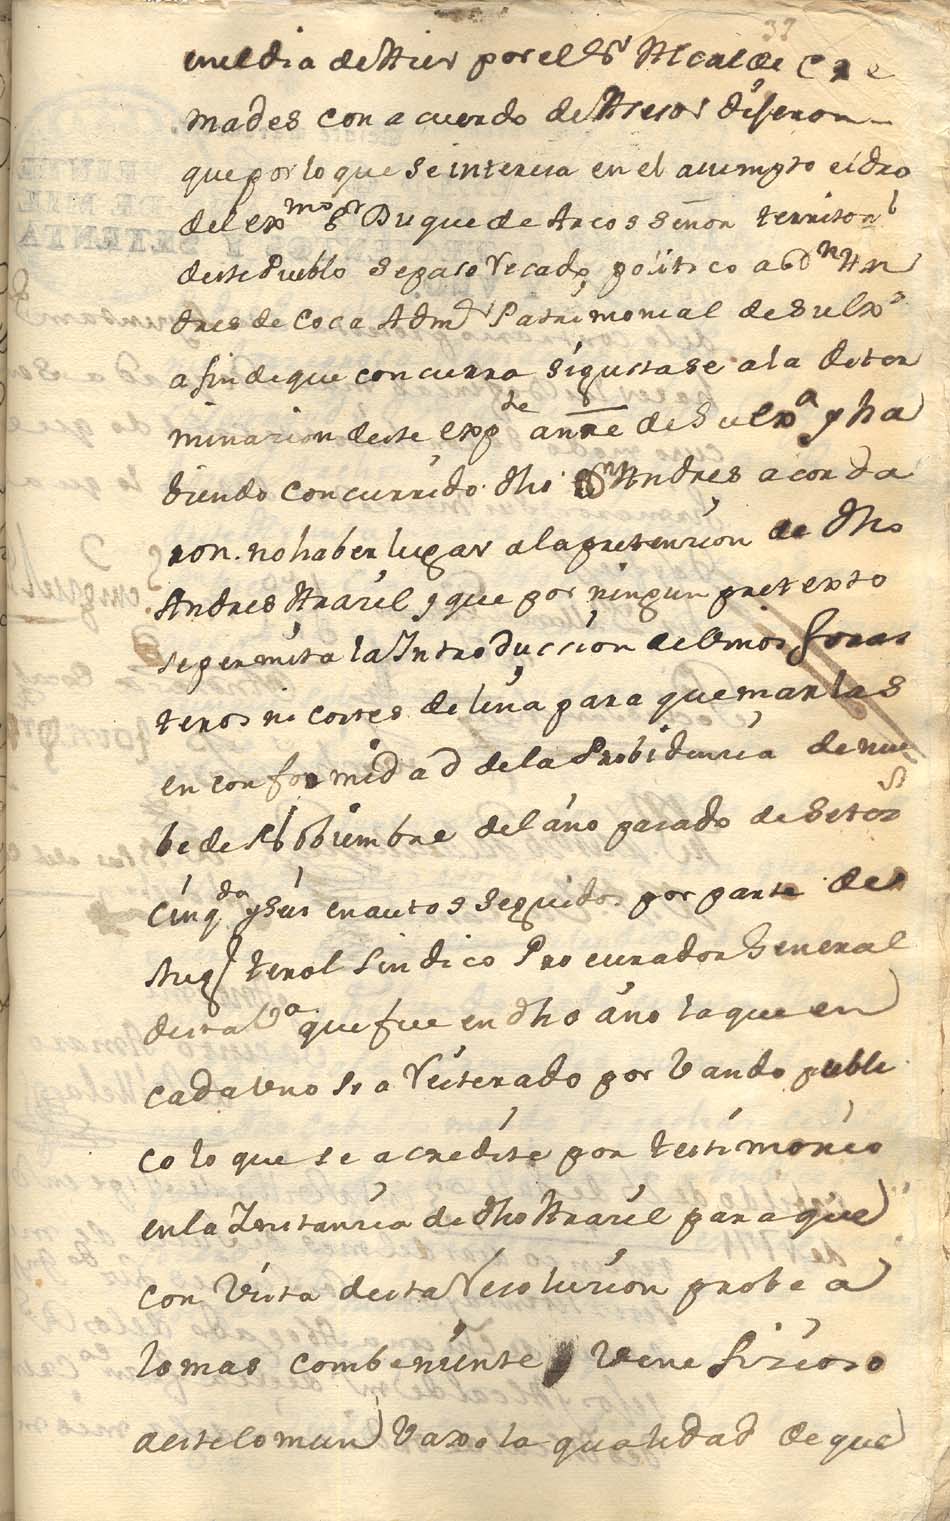 37
en el dia de Aier por el Sr Alcalde Cre
mades con acuerdo de Asesor dijeron
que por lo que se interesa en el asumpto el dro
del exmo Sr Duque de Arcos señor territorl
deste Pueblo se pase recado politico a Dn An
dres de Coca Admr Patrimonial de su Exa
a fin de que concurra si gustase a la deter
minazion deste expte a nre de Su exa y ha
biendo concurrido dho Dn Andres acorda
ron no haber lugar a la pretension de dho
Andres Arazil y que por ningun pretexto
se permita la Introduccion de Vinos foras
teros ni cortes de leña para quemarlas
en conformidad de la Probidencia de nue
be de Nobiembre del año pasado de Setos
Cinqta y seis en autos seguidos por parte de
Terol Sindico Procurador General
desta Va que fue en dho año la que en
cada uno se a reiterado por Vando publi
co lo que se acredite por testimonio
en la Instancia de dho Arazil para que
con Vista desta resoluzion probea
lo mas combeniente y Venefizioso
deste Comun Vaxo la qualidad de que